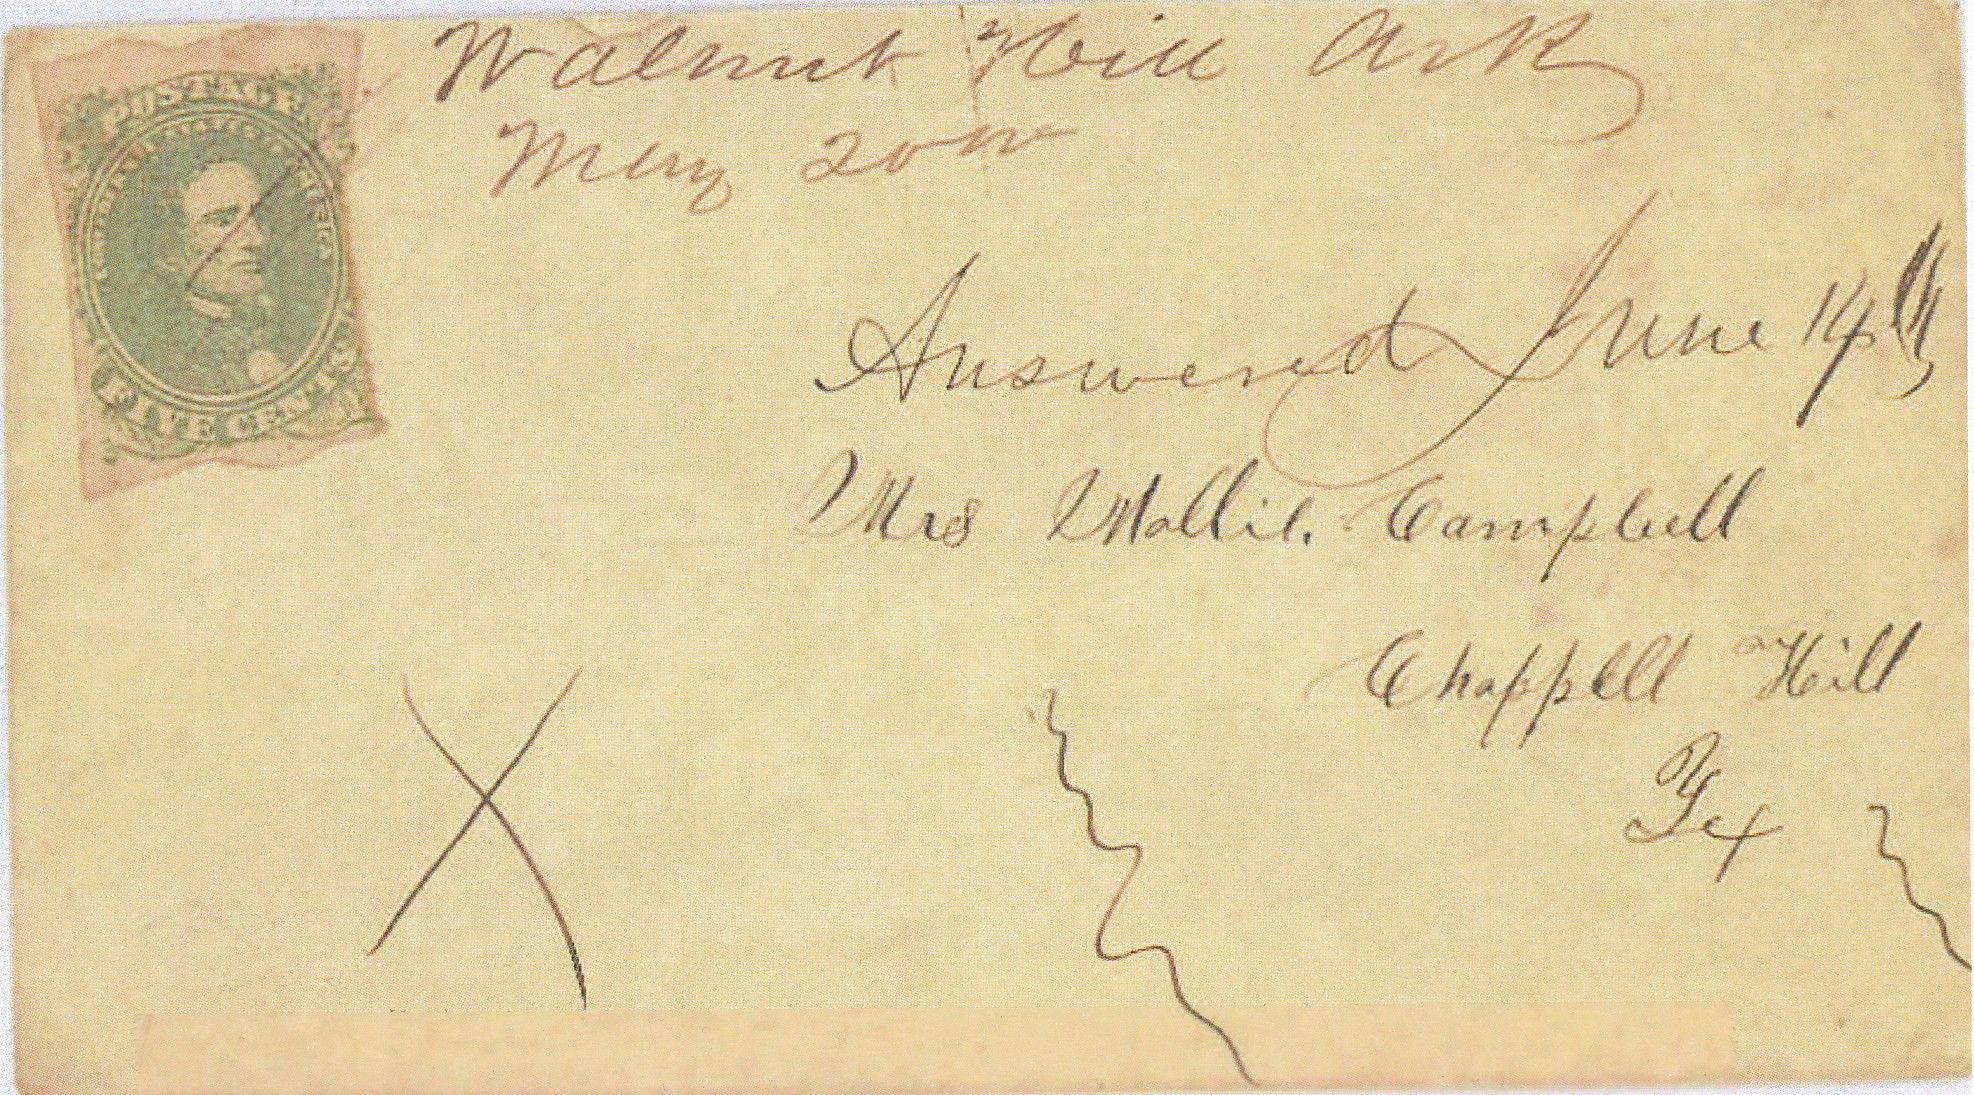 Walnut Hill Ark
May 20th
POSTAGE
CONFEDERATE STATES OF AMERICA
FIVE CENTS
Answered June 14th
Mrs Mollie. Campbell
Chappell Hill
Tex